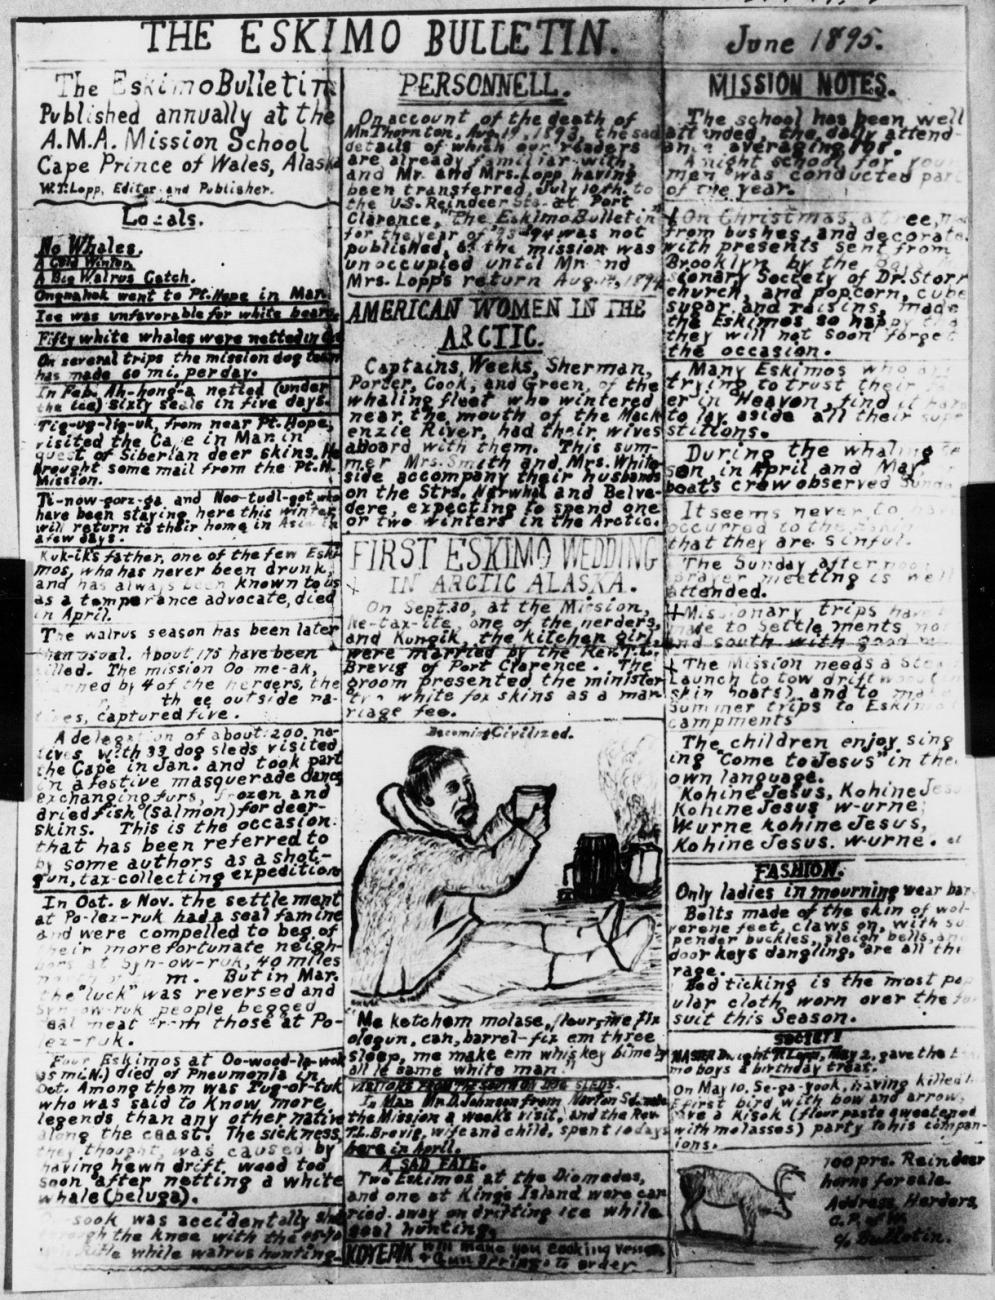 THE ESKIMO BULLETIN.
June 1895.
The Eskimo Bulletin
Published annually at the
A.M.A. Mission School
Cape Prince of Wales, Alaska
W.T. Lopp, Editor and Publisher.
Locals.
No Whales.
A Cold Winter.
A Big Walrus Catch.
Ongnahok went to Pt. Hope in Mar.
Ice was unfavorable for white bears.
Fifty white whales were netted in
On several trips the mission dog team
has made 60 mi. per day.
In Feb. Ah-hong-a netted (under
the ice) sixty seals in five days.
Tig-ug-lig-uk, from near Pt. Hope,
visited the Cape in Mar. in
quest of Siberian deer skins. He
brought some mail from the Pt. H.
Mission.
Ti-now-gorz-ga and Noo-tudl-got, who
have been staying here this winter,
will return to their home in Asia in
a few days.
Kuk-ik's father, one of the few Eski-
mos, who has never been drunk,
and has always been known to us
as a temperance advocate, died
in April.
The walrus season has been later
than usual. About 175 have been
killed. The mission Oo me-ak,
manned by 4 of the herders, the
th ee outside na-
tives, captured five.
A delegation of about 200 na-
tives with 33 dog sleds visited
the Cape in Jan. and took part
in a festive masquerade dance
exchanging furs, frozen and
dried fish (salmon) for deer-
skins. This is the occasion
that has been referred to
by some authors as a shot-
gun, tax-collecting expedition
In Oct. & Nov. the settlement
at Po-lez-ruk had a seal famine
and were compelled to beg of
their more fortunate neigh-
bors at Syn-ow-ruk, 40 miles
m. But in Mar.
the "luck" was reversed and
Syn-ow-ruk people begged
seal meat from those at Po-
lez-ruk.
Four Eskimos at Oo-wood-la-wok
died of Pneumonia in
Oct. Among them was Tug-or-tuk
who was said to know more
legends than any other native
along the coast. The sickness,
they thought, was caused by
having hewn drift wood too
soon after netting a white
whale (beluga).
sook was accidentally shot
through the knee with the
while walrus hunting.
PERSONNELL.
On account of the death of
Mr. Thornton, Aug. 19, 1893, the sad
details of which our readers
are already familiar with,
and Mr. and Mrs. Lopp having
been transferred, July 10th. to
the U.S. Reindeer Sta. at Port
Clarence, "The Eskimo Bulletin"
for the year of '93-'94 was not
published, as the mission was
unoccupied until Mr. and
Mrs. Lopp's return Aug. 1894
AMERICAN WOMEN IN THE
ARCTIC.
Captains, Weeks, Sherman,
Porter, Cook, and Green, of the
whaling fleet who wintered
near the mouth of the Mack
enzie River, had their wives
aboard with them. This sum-
mer Mrs. Smith and Mrs. White-
side accompany their husbands
on the Strs. Narwhal and Belve-
dere, expecting to spend one
or two winters in the Arctic.
FIRST ESKIMO WEDDING
IN ARCTIC ALASKA.
On Sept. 30, at the Mission,
Ke-tax-ite, one of the herders,
and Kungik, the kitchen girl,
were married by the Rev. T.L.
Brevig of Port Clarence. The
groom presented the minister
two white fox skins as a mar
riage fee.
Becoming Civilized.
"Me ketchem molase, flour, me fix
olegun, can, barrel-fix em three
sleep, me make em whiskey bimeby
all le same white man."
VISITORS FROM THE SOUTH ON DOG SLEDS.
In Mar. Mr. D. Johnson from Norton Sound
the Mission a week's visit, and the Rev.
T.L. Brevig, wife and child, spent 10 days
here in April.
A SAD FATE.
Two Eskimos at the Diomedes,
and one at King's Island were car
ried away on drifting ice while
seal hunting.
KOYEPIK will make you cooking vessels
& Gun Springs to order.
MISSION NOTES.
The school has been well
attended, the daily attend-
ance averaging
A night school for young
men was conducted part
of the year.
On Christmas, a tree, made
from bushes, and decorated
with presents sent from
Brooklyn by the
sionary Society of Dr. Storr
church, and popcorn, cube
sugar and raisins, made
the Eskimos so happy that
they will not soon forget
the occasion.
Many Eskimos who are
trying to trust their Fa
er in Heaven, find it hard
to lay aside all their super
stitions.
During the whaling sea
son, in April and May,
boat's crew observed Sunday
It seems never to have
occurred to the
that they are sinful.
The Sunday afternoon
prayer meeting is well
attended.
Missionary trips have
made to settlements north
and south with good
The Mission needs a Steam
Launch to tow driftwood (in
skin boats), and to make
Summer trips to Eskimo
campments
The children enjoy sing
ing "Come to Jesus" in their
own language.
"Kohine Jesus, Kohine Jesus
Kohine Jesus w-urne;
W-urne kohine Jesus,
Kohine Jesus. w-urne.
FASHION.
Only ladies in mourning wear
Belts made of the skin of wol-
verene feet, claws on, with sus
pender buckles, sleigh bells, and
door keys dangling, are all the
rage.
Bed ticking is the most pop
ular cloth worn over the fur
suit this Season.
SOCIETY
MASTER Dwight T. Lopp, May 2, gave the Eski
mo boys a birthday treat.
On May 10, Se-ga-yook, having killed
first bird with bow and arrow,
gave a Kisok (flour paste sweetened
with molasses) party to his compan-
ions.
100 prs. Reindeer
horns for sale.
Address, Herders,
C.P. of W.
c/o Bulletin.